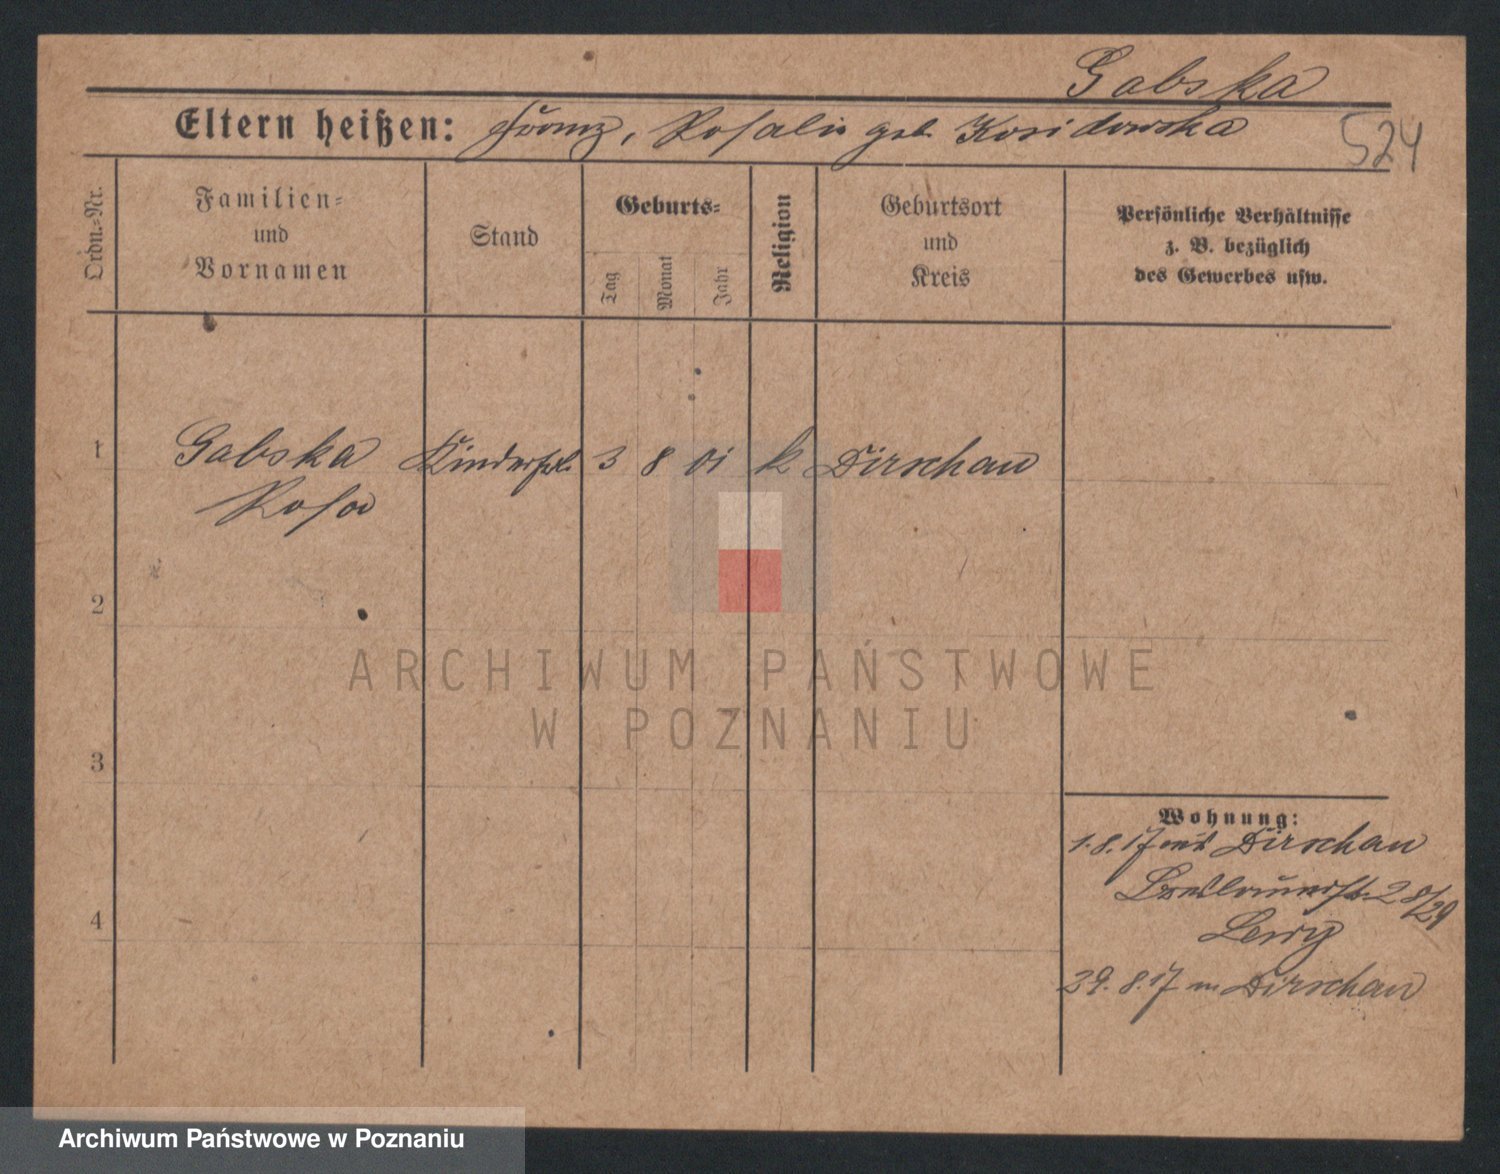 Gabska
Eltern heißen: Franz, Rosalie geb. Kosidowska
524
Ordn.-Nr.
Familien-
und
Vornamen
Stand
Geburts-
Tag
Monat
Jahr
Religion
Geburtsort
und
Kreis
Persönliche Verhältnisse
z. B. bezüglich
des Gewerbes usw.
1 Gabska Kinderfrl. 3 8 01 k Dirschau
Rosa
2
3
4
ARCHIWUM PAŃSTWOWE
W POZNANIU
Wohnung:
1.8.17 aus Dirschau
28/29
Lewy
29.8.17 n Dirschau
Archiwum Państwowe w Poznaniu